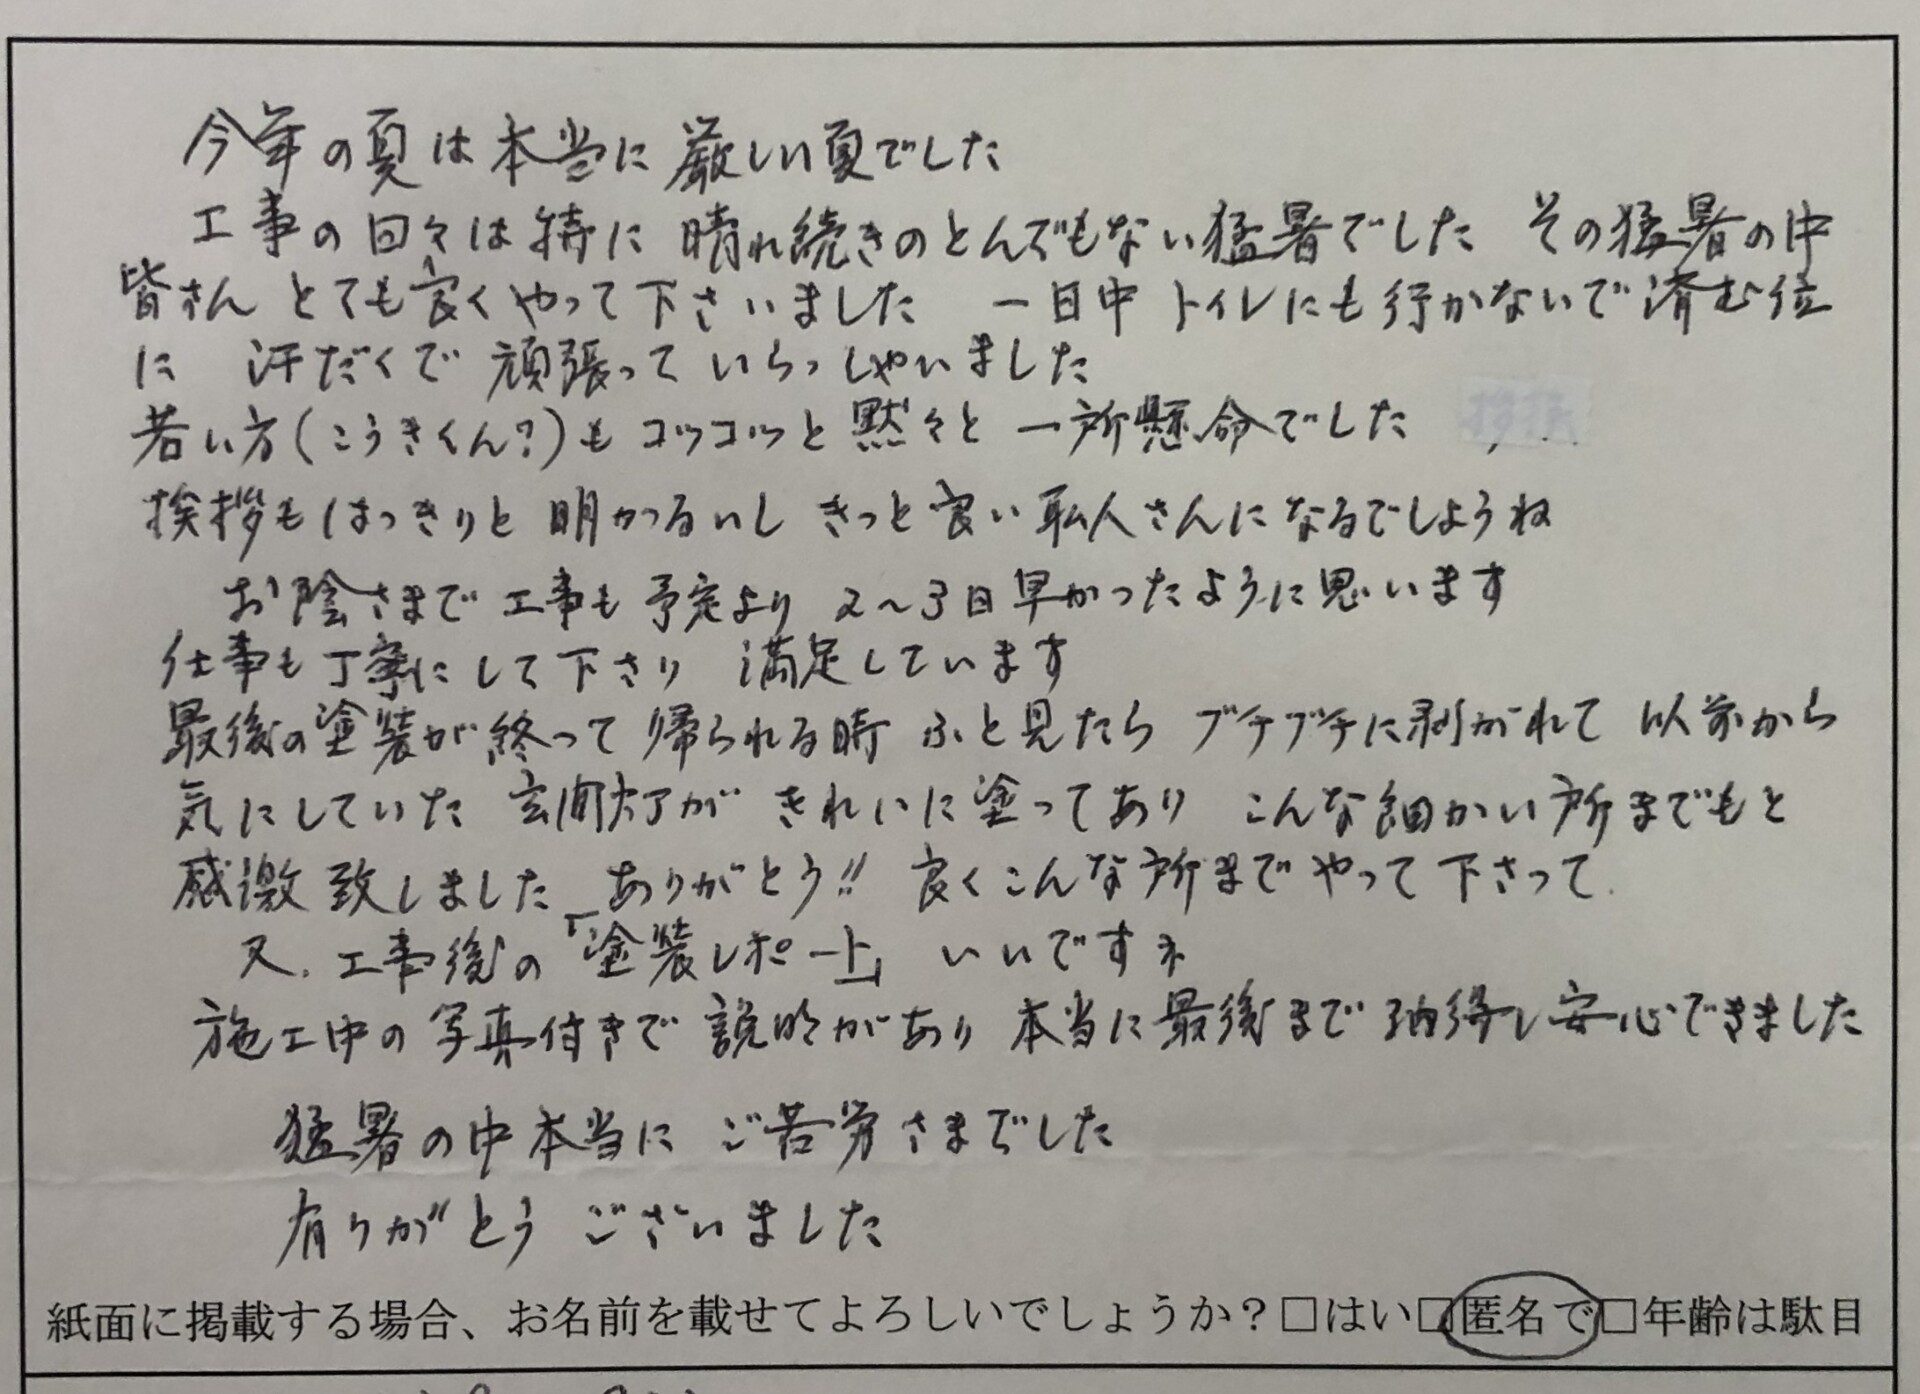 今年の夏は本当に厳しい夏でした
工事の日々は特に 晴れ続きのとんでもない猛暑でした その猛暑の中
皆さん とても良くやって下さいました 一日中 トイレにも行かないで済む位
に 汗だくで 頑張って いらっしゃいました
若い方(こうきくん?)も コツコツと 黙々と 一所懸命でした
挨拶も はっきりと 明かつるいし きっと良い 職人さんになるでしようね
お陰さまで 工事も 予定より 2〜3日早かったように思います
仕事も丁寧にして下さり 満足しています
最後の塗装が終って 帰られる時 ふと見たら ブチブチに剥がれて 以前から
気にしていた 玄関灯が きれいに塗ってあり こんな細かい所までもと
感激致しました ありがとう!! 良くこんな所まで やって下さって.
又、工事後の「塗装レポート」 いいですネ
施工中の 写真付きで 説明があり 本当に最後まで 納得し安心できました
猛暑の中本当に ご苦労さまでした
有りがとう ございました
紙面に掲載する場合、お名前を載せてよろしいでしょうか?□はい□匿名で□年齢は駄目